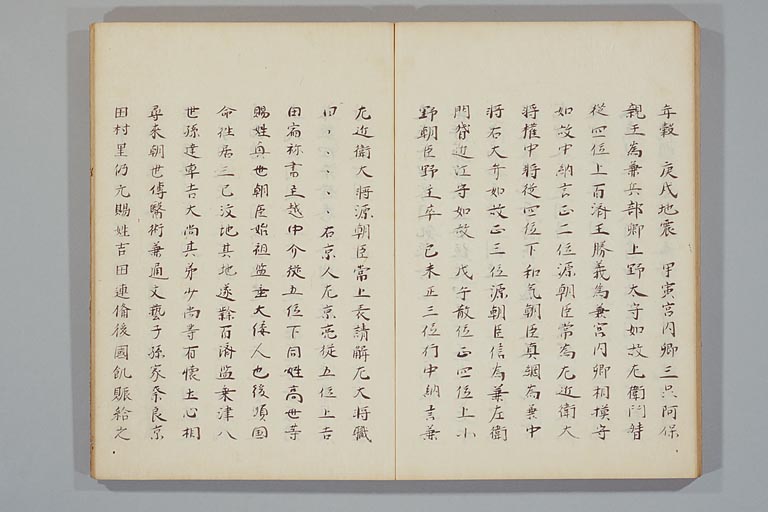 年穀　庚戌地震　甲寅宮内卿三品阿保
親王為兼兵部卿上野太守如故左衛門督
従四位上百濟王勝義為兼宮内卿相摸守
如故中納言正三位源朝臣常為左近衛大
将權中将從四位下和氣朝臣真綱為兼中
将右大弁如故正三位源朝臣信為兼左衛
門督近江守如故　戊午散位正四位上小
野朝臣野主卒　己未正三位行中納言兼
左近衛大将源朝臣常上表請解左大将職
曰、、、、、右京人左京亮従五位上吉
田宿祢書主越中介從五位下同姓高世等
賜姓興世朝臣始祖塩垂大倭人也後順国
命往居三己汶地其地遂隷百濟塩乗津八
世孫達率吉大尚其弟少尚等有懐土心相
尋来朝世傳醫術兼通文藝子孫家奈良京
田村里仍元賜姓吉田連備後國飢賑給之